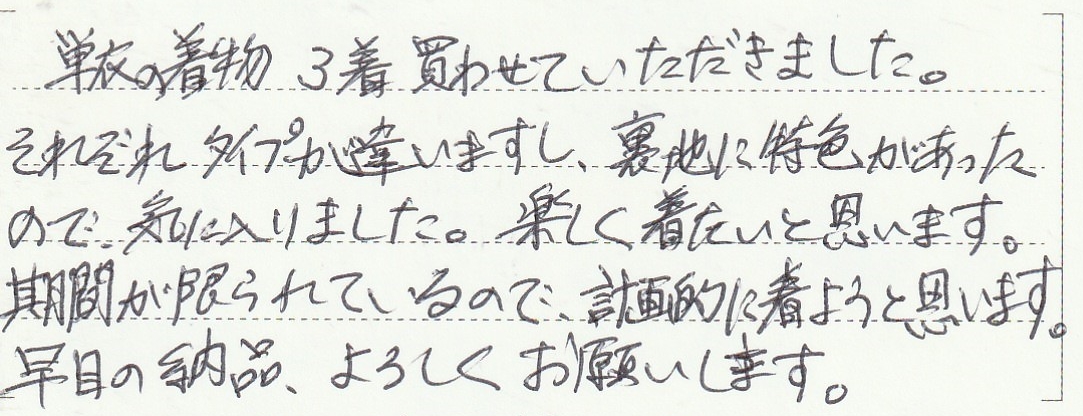 単衣の着物 3着 買わせていただきました。
それぞれ タイプが違いますし、裏地に特色があった
ので、気に入りました。楽しく着たいと思います。
期間が限られているので、計画的に着ようと思います。
早目の納品、よろしくお願いします。